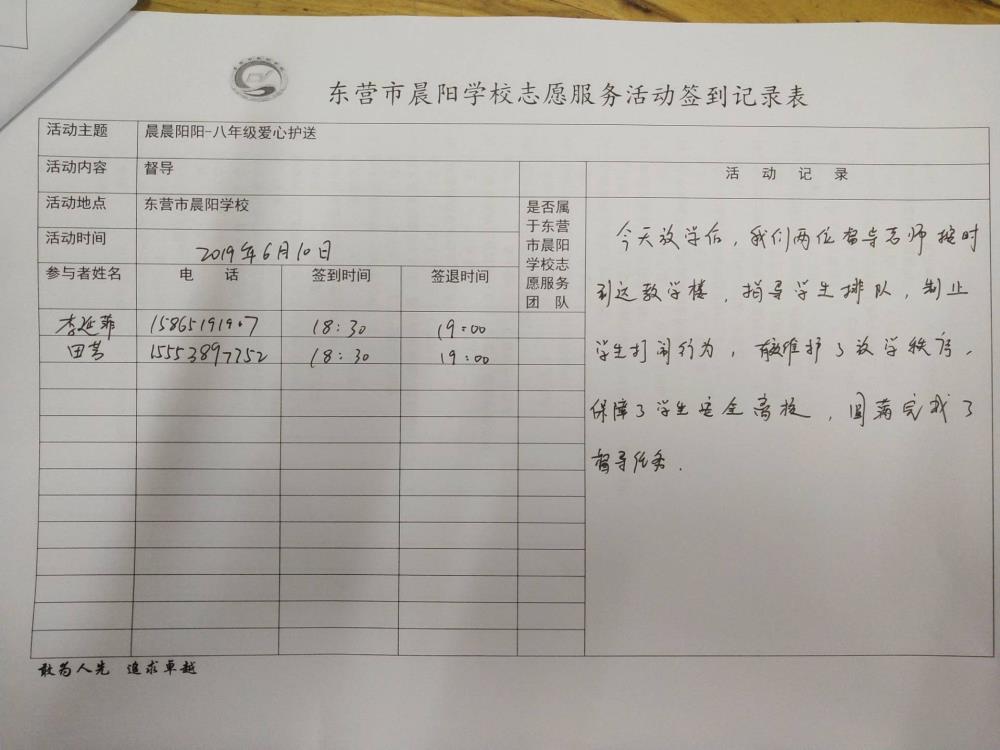 东营市晨阳学校志愿服务活动签到记录表
活动主题 晨晨阳阳-八年级爱心护送
活动内容 督导
活动地点 东营市晨阳学校
活动时间 2019年6月10日
参与者姓名 电 话 签到时间 签退时间
是否属
于东营
市晨阳
学校志
愿服务
团 队
李延菲 15865191907 18:30 19:00
田 15553897752 18:30 19:00
活 动 记 录
今天放学后，我们两位督导老师按时
到达教学楼，指导学生排队，制止
学生打闹行为，有效维护了放学秩序，
保障了学生安全离校，圆满完成了
督导任务.
敢为人先 追求卓越